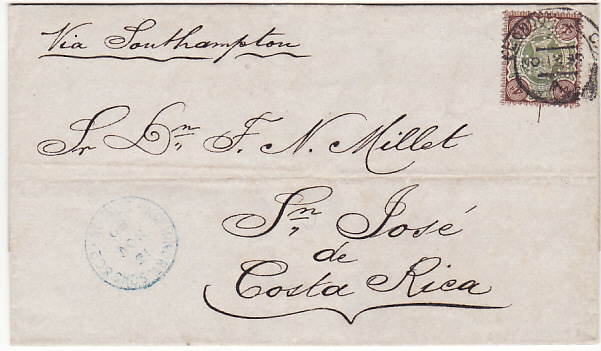 Via Southampton
Sr Dn F. N. Millet
Sn José
de
Costa Rica